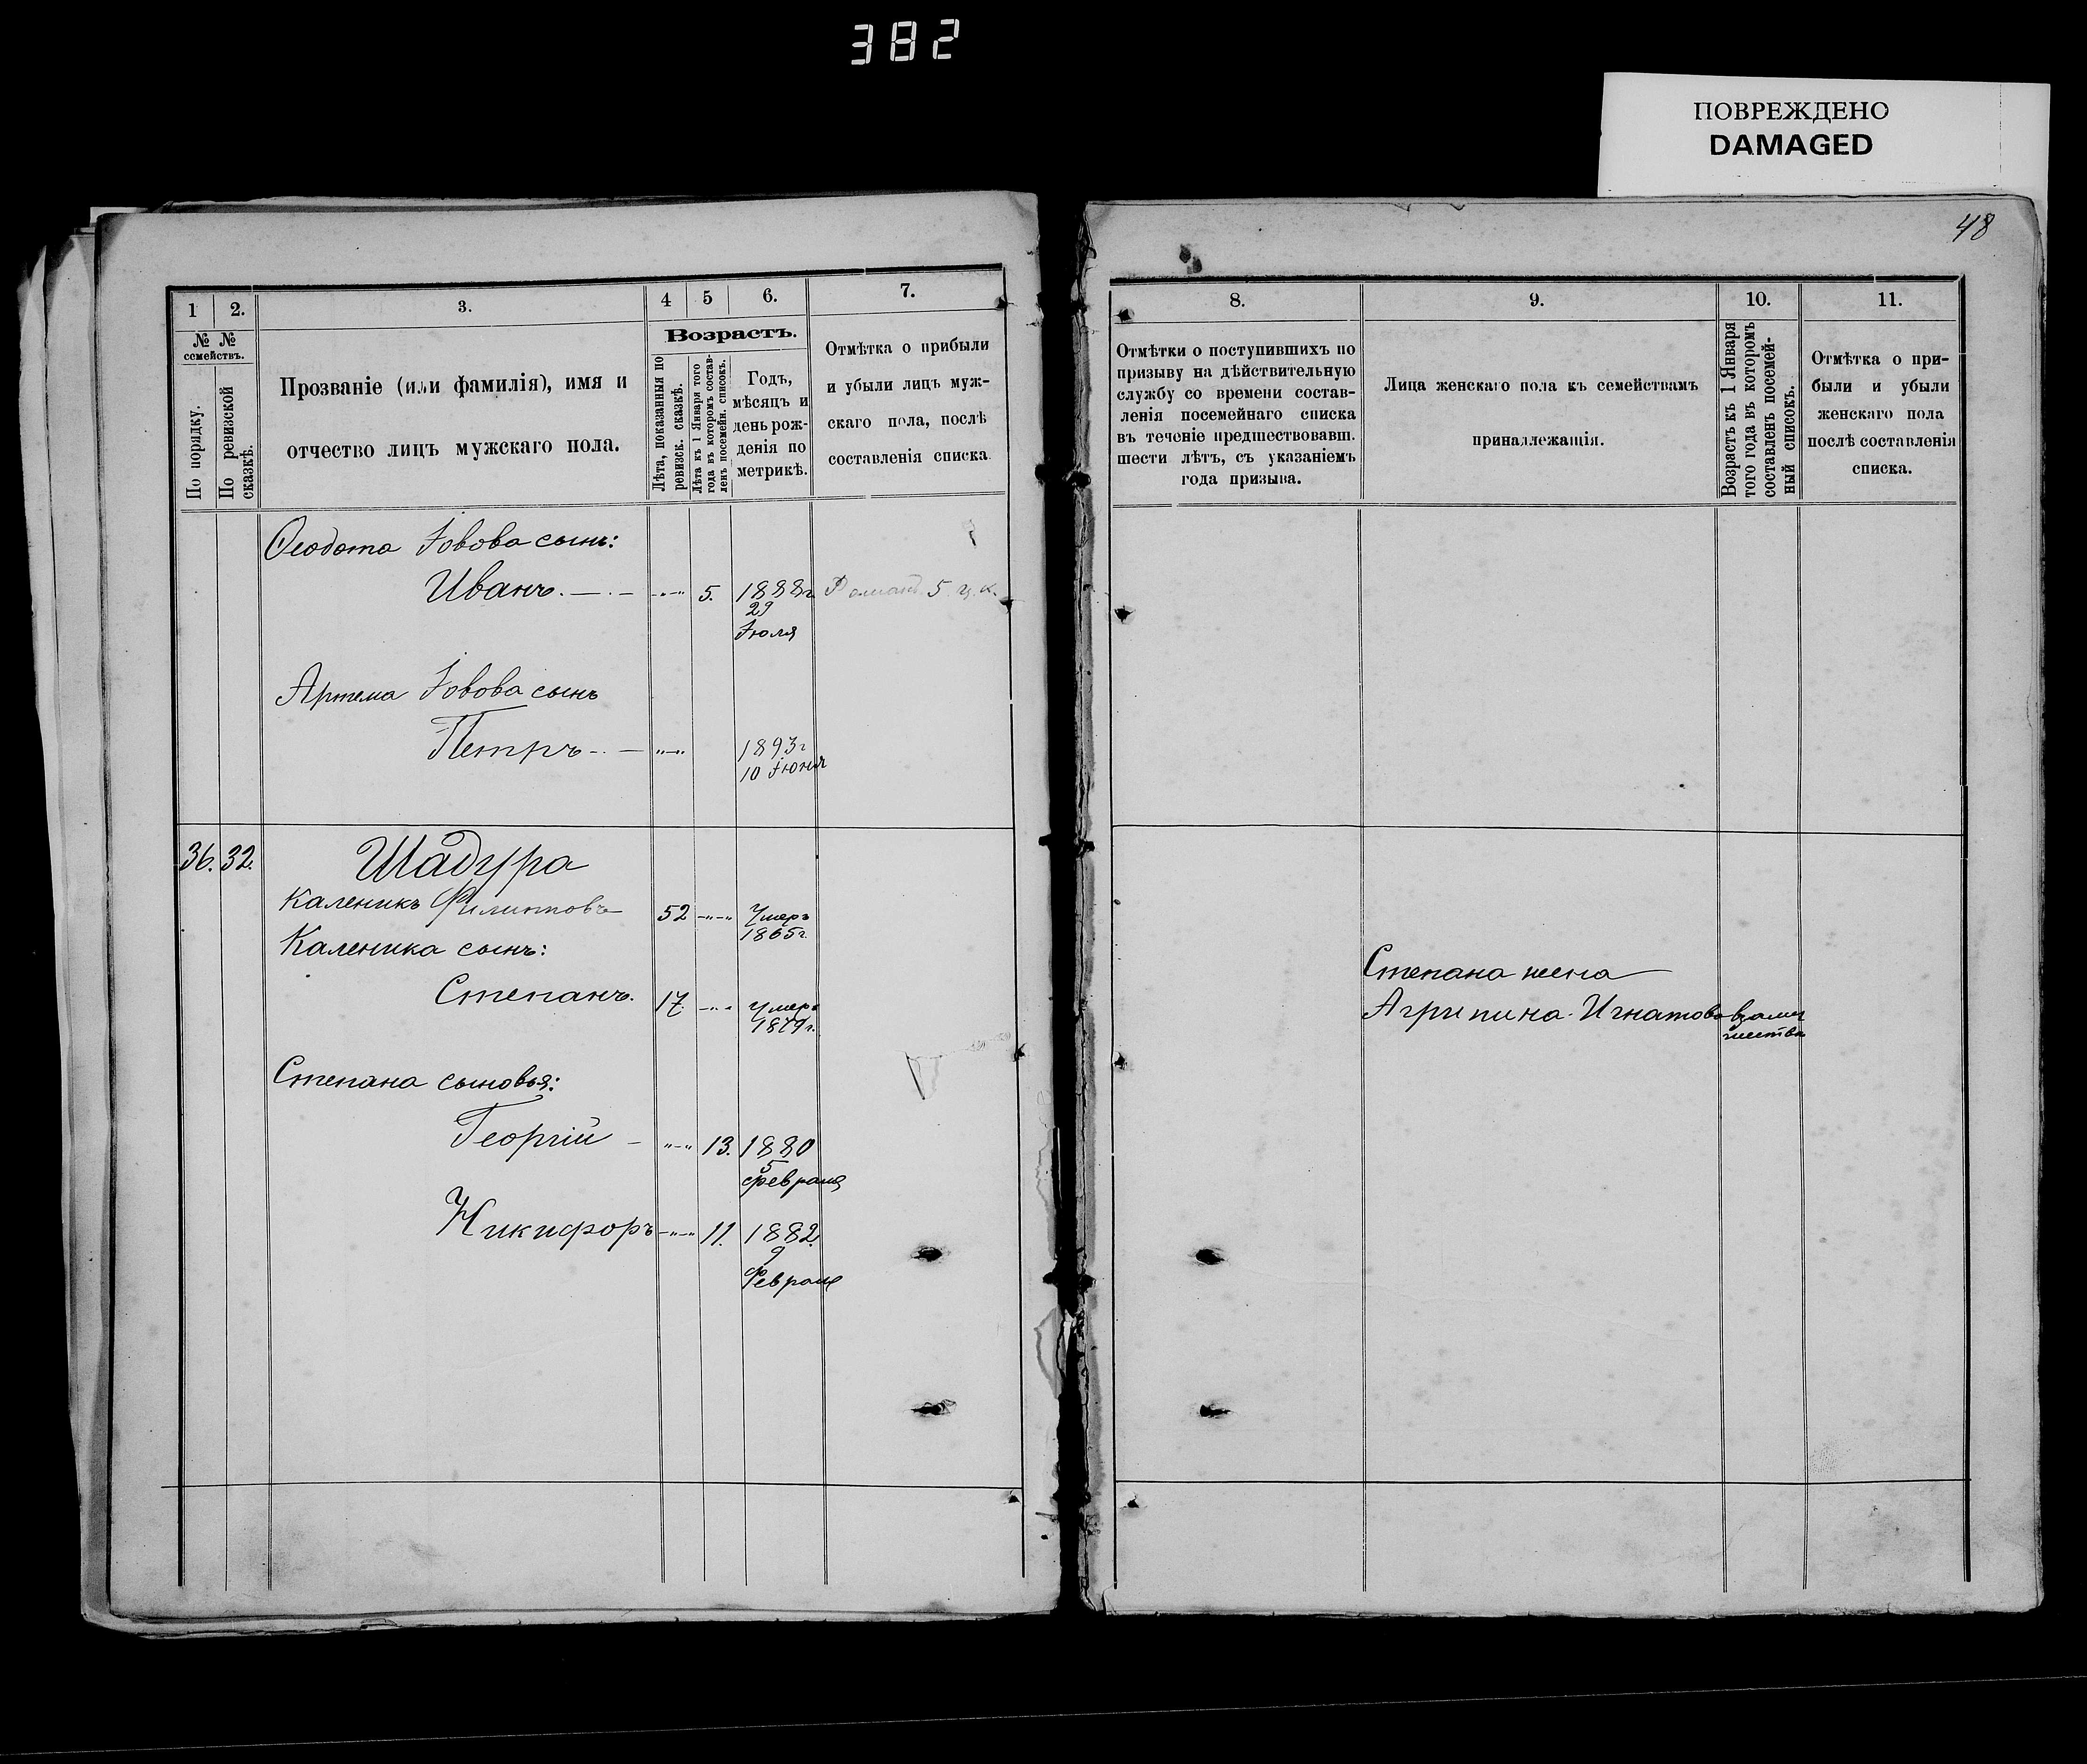 382
ПОВРЕЖДЕНО
DAMAGED
48
1
2.
3.
4
5
6.
7.
№ №
семействъ.
По порядку.
По ревизской
сказкѣ.
Прозваніе (или фамилія), имя и
отчество лицъ мужскаго пола.
Возрастъ.
Лѣта, показанныя по
ревизск. сказкѣ.
Лѣта къ 1 Января того
года въ которомъ состав-
ленъ посемейн. списокъ.
Годъ,
мѣсяцъ и
день рож-
денія по
метрикѣ.
Отмѣтка о прибыли
и убыли лицъ муж-
скаго пола, послѣ
составленія списка.
Ѳеодота Іовова сынъ:
Иванъ. 5. 1888г.
29
Іюля
5
Артема Іовова сынъ
Петръ 1893г
10 Іюня
36. 32. Шадура
Каленикъ Филиповъ 52 Умеръ
1865г.
Каленика сынъ:
Степанъ. 17. Умеръ
1879г.
Степана сыновья:
Георгій 13. 1880
5
Февраля
Никифоръ 11. 1882.
9
Февраля
8.
9.
10.
11.
Отмѣтки о поступившихъ по
призыву на дѣйствительную
службу со времени состав-
ленія посемейнаго списка
въ теченіе предшествовавш.
шести лѣтъ, съ указаніемъ
года призыва.
Лица женскаго пола къ семействамъ
принадлежащія.
Возрастъ къ 1 Января
того года въ которомъ
составленъ посемей-
ный списокъ.
Отмѣтка о при-
были и убыли
женскаго пола
послѣ составленія
списка.
Степана жена
Агрипина Игнатова взаму
жества